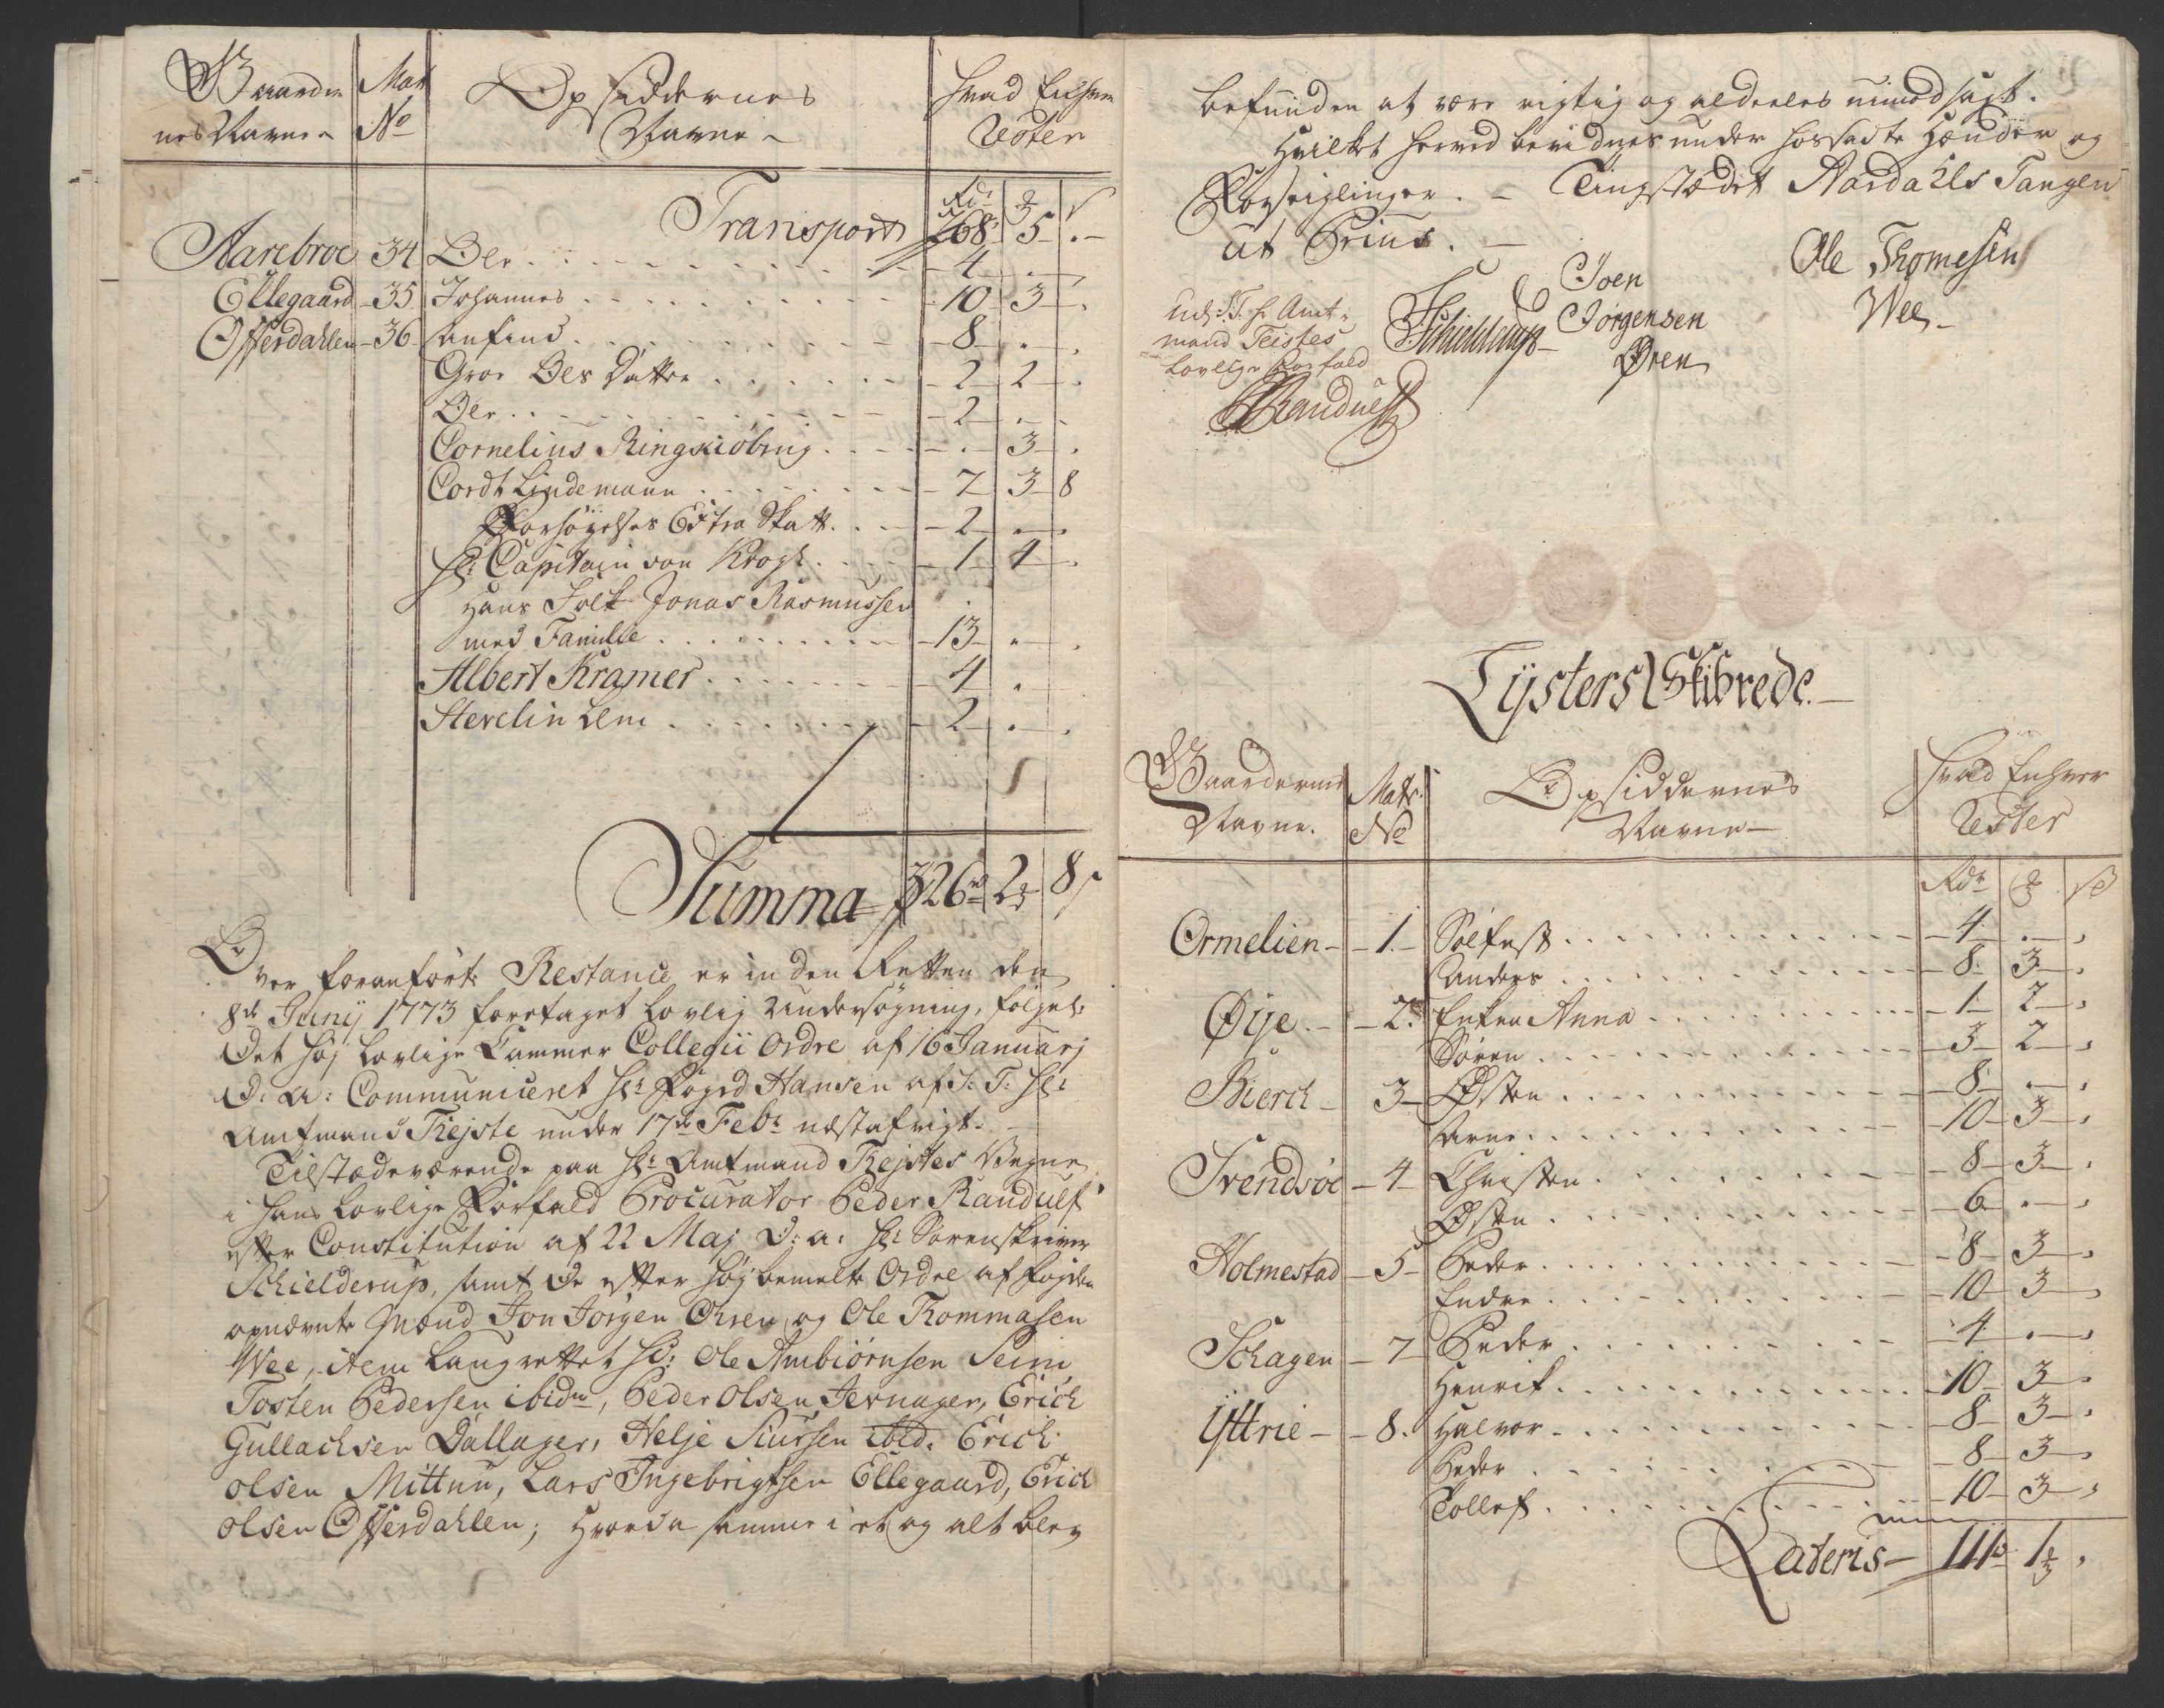 Gaarder
nes Navne
Matr
No
Opsiddernes
Navne
Hvad Enhver
Rester
Rdr
Transport 268 5 . -
Aarebroe 34 Ole - 4 . -
Ellegaard - 35 Johannes - 10 3 .
Offerdahlen - 36 Anfind - 8 . .
Groe Oles Datter - 2 2 .
Ole - 2 . -
Cornelius Ringkiöbing - . 3 .
Cordt Lindemann - 7 3 8
Forhöyelses Extra Skatt - 2 . .
Hr: Capitain von Krogh - 1 4 .
Hans Folk Jonas Rasmussen
med Familie - 13 . .
Albert Kramer - 4 .
Stevelin Lem - 2 . .
Summa 326 rd 2 8 s
Over foranförte Restance er inden Retten den
8de Junij 1773 foretaget lovlig Undersögning, fölgel:
Det höj lovlige Cammer Collegii Ordre af 16 Januarj
D: A: Communiceret Hr: Fogd Hansen af S: T: Hr:
Amtmand Tejste under 17de Febr: næstafvigt.
Tilstædeværende paa Hr: Amtmand Tejstes Vegne
i hans lovlige Forfald Procurator Peder Randulf
efter Constitution af 22 Maj D: a: Hr: Sorenskriver
Schielderup, samt De efter höjbemelte Ordre af Fogden
opnævnte Mænd Jon Jörgen Ören og Ole Thommasen
Wee, item Laugrettet so: Ole Ambiörnsen Seim
Tosten Pedersen ibidm, Peder Olsen Jernager, Erich
Gullachsen Dallager, Helje Siursen ibid. Erich
Olsen Mittun, Lars Ingebrigtsen Ellegaard, Erich
Olsen Offerdahlen; Hvorda samme i et og alt blev
befunden at være rigtig og aldeeles uimodsagt.
Hvilket herved bevidnes under hossadte Hænder og
Forseiglinger. - Tingstædet Aardahls Tangen
ut Prius. -
Udj S: T: Hr Amt-
mand Teistes
lovlige Forfald
PRandulff
Schielderup
Joen
Jörgensen
Øren
Ole Thomesen
Wee
Lysters Skibrede.
Gaardernes
Navne.
Matr.
No
Opsiddernes
Navne
Hvad Enhver
Rester
Rdr
Ormelien - 1. Solfest - 4 . ,
Anders - 8 3 ,
Øije - 2. Enken Anna - 1 2 ,
Sören - 3 2 ,
Bierch - 3 Østen - 8 . ,
Arne - 10 3 ,
Svendsöe - 4 Christen - 8 3 ,
Østen - 6 . ,
Holmestad - 5 Peder - 8 3 ,
Endre - 10 3 ,
Schagen - 7 Peder - 4 . ,
Henrik - 10 3 ,
Ÿttrie - 8. Halvor - 8 3 ,
Peder - 8 3 ,
Tollef - 10 3 ,
Lateris - 111 1 ,